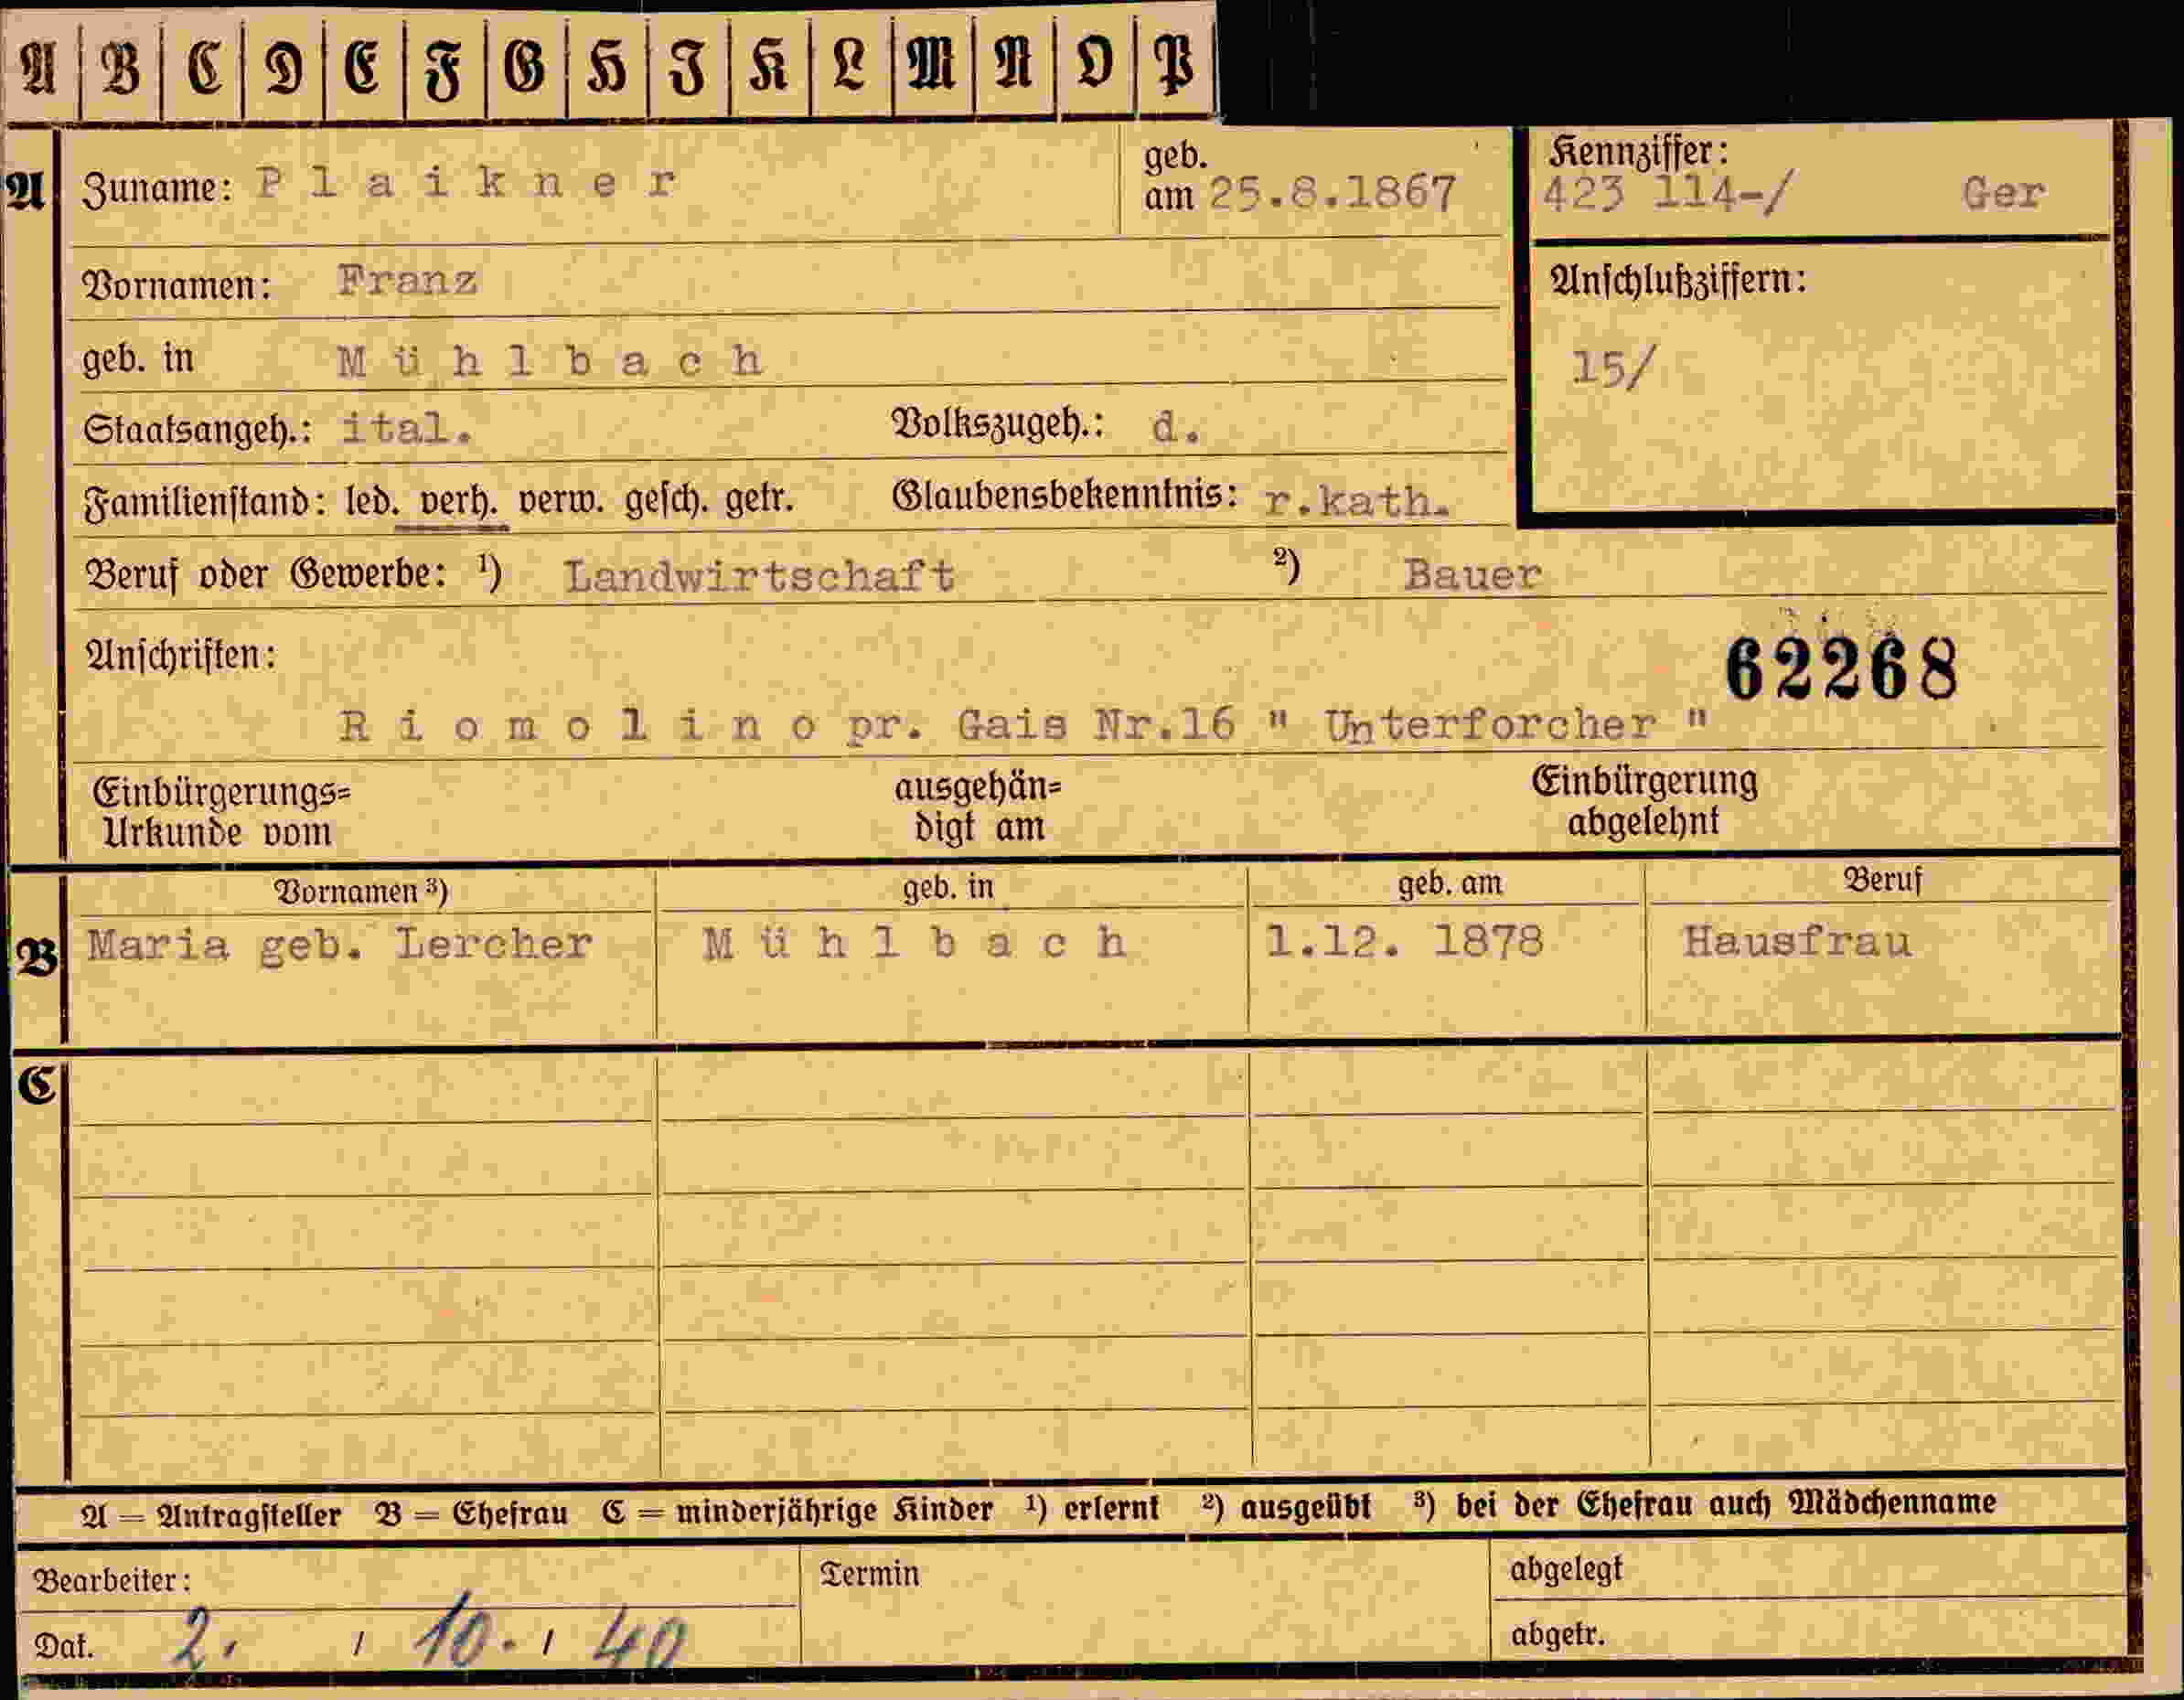 A B C D E F G H I K L M N O P
A Zuname: Plaikner geb. am 25.8.1867 Kennziffer: 423 114-/ Ger
Vornamen: Franz Anschlußziffern:
geb. in Mühlbach 15/
Staatsangeh.: ital. Volkszugeh.: d.
Familienstand: led. verh. verw. gesch. getr. Glaubensbekenntnis: r.kath.
Beruf oder Gewerbe: ¹) Landwirtschaft ²) Bauer
Anschriften: 62268
Riomolino pr. Gais Nr.16 " Unterforcher "
Einbürgerungs= ausgehän= Einbürgerung
Urkunde vom digt am abgelehnt
Vornamen ³) geb. in geb. am Beruf
B Maria geb. Lercher Mühlbach 1.12. 1878 Hausfrau
C
A = Antragsteller B = Ehefrau C = minderjährige Kinder ¹) erlernt ²) ausgeübt ³) bei der Ehefrau auch Mädchenname
Bearbeiter: Termin abgelegt
Dat. 2. / 10. / 40 abgetr.